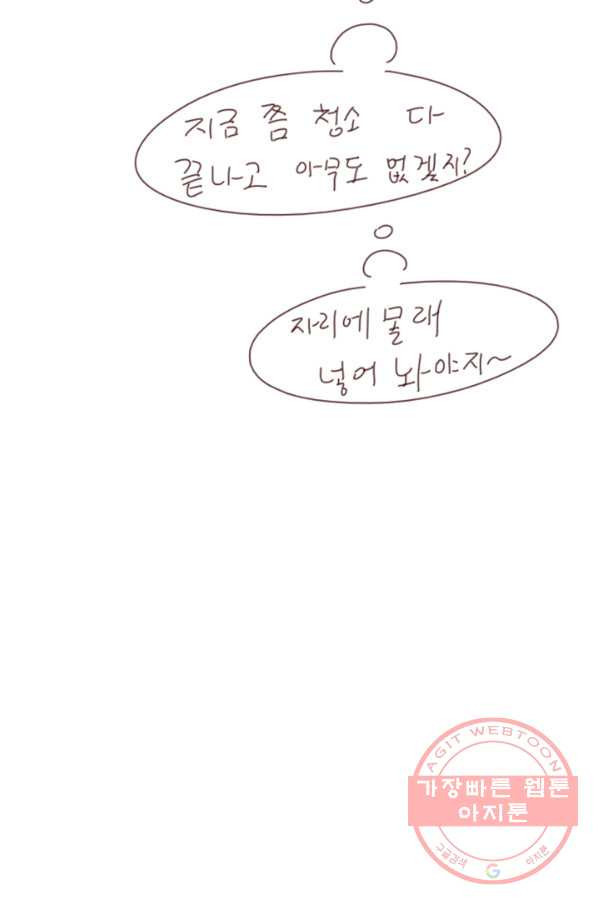 지금 쯤 청소 다
끝나고 아무도 없겠지?
자리에 몰래
넣어 놔야지~
AGIT WEBTOON
가장빠른 웹툰
아지툰
구글검색 G 아지툰